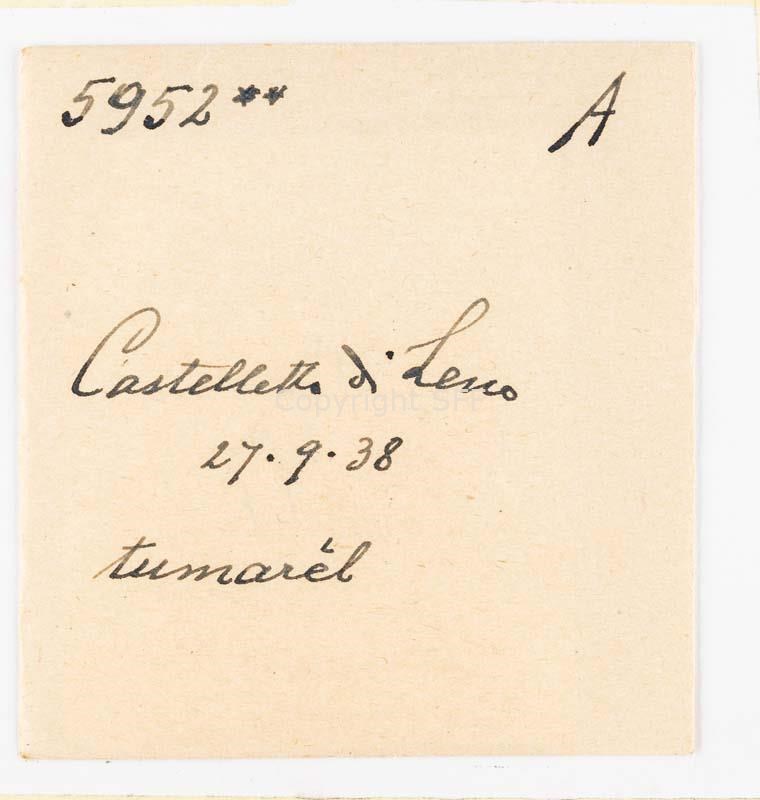 5952** A
Castelletto di Leno
Copyright SFI
27.9.38
tumarèl